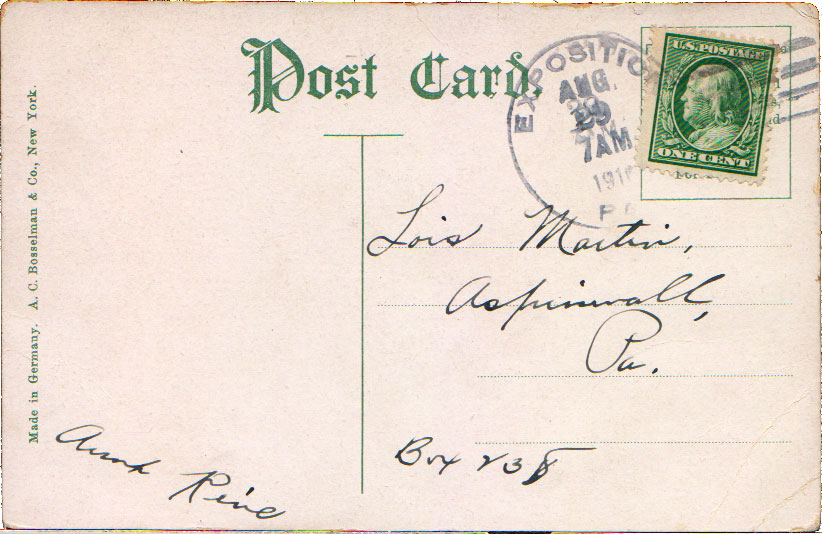 Post Card.
EXPOSITION
AUG.
29
7 AM
1910
PA
U.S. POSTAGE
ONE CENT
Made in Germany. A. C. Bosselman & Co., New York.
Lois Martin,
Aspinwall,
Pa.
Box 238
Aunt